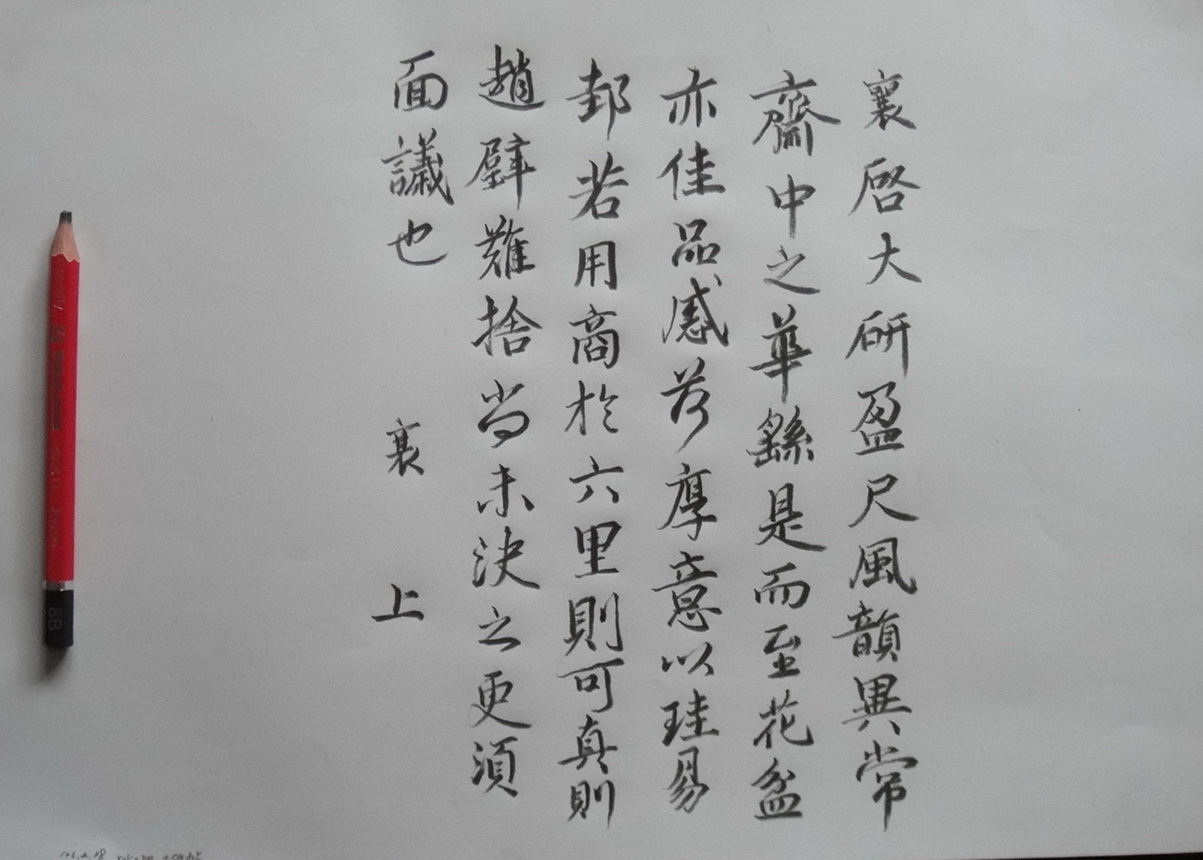 襄啓大研盈尺風韻異常
齋中之華繇是而至花盆
亦佳品感荷厚意以珪易
邽若用商於六里則可真則
趙璧難捨尚未決之更須
面議也 襄 上
8B